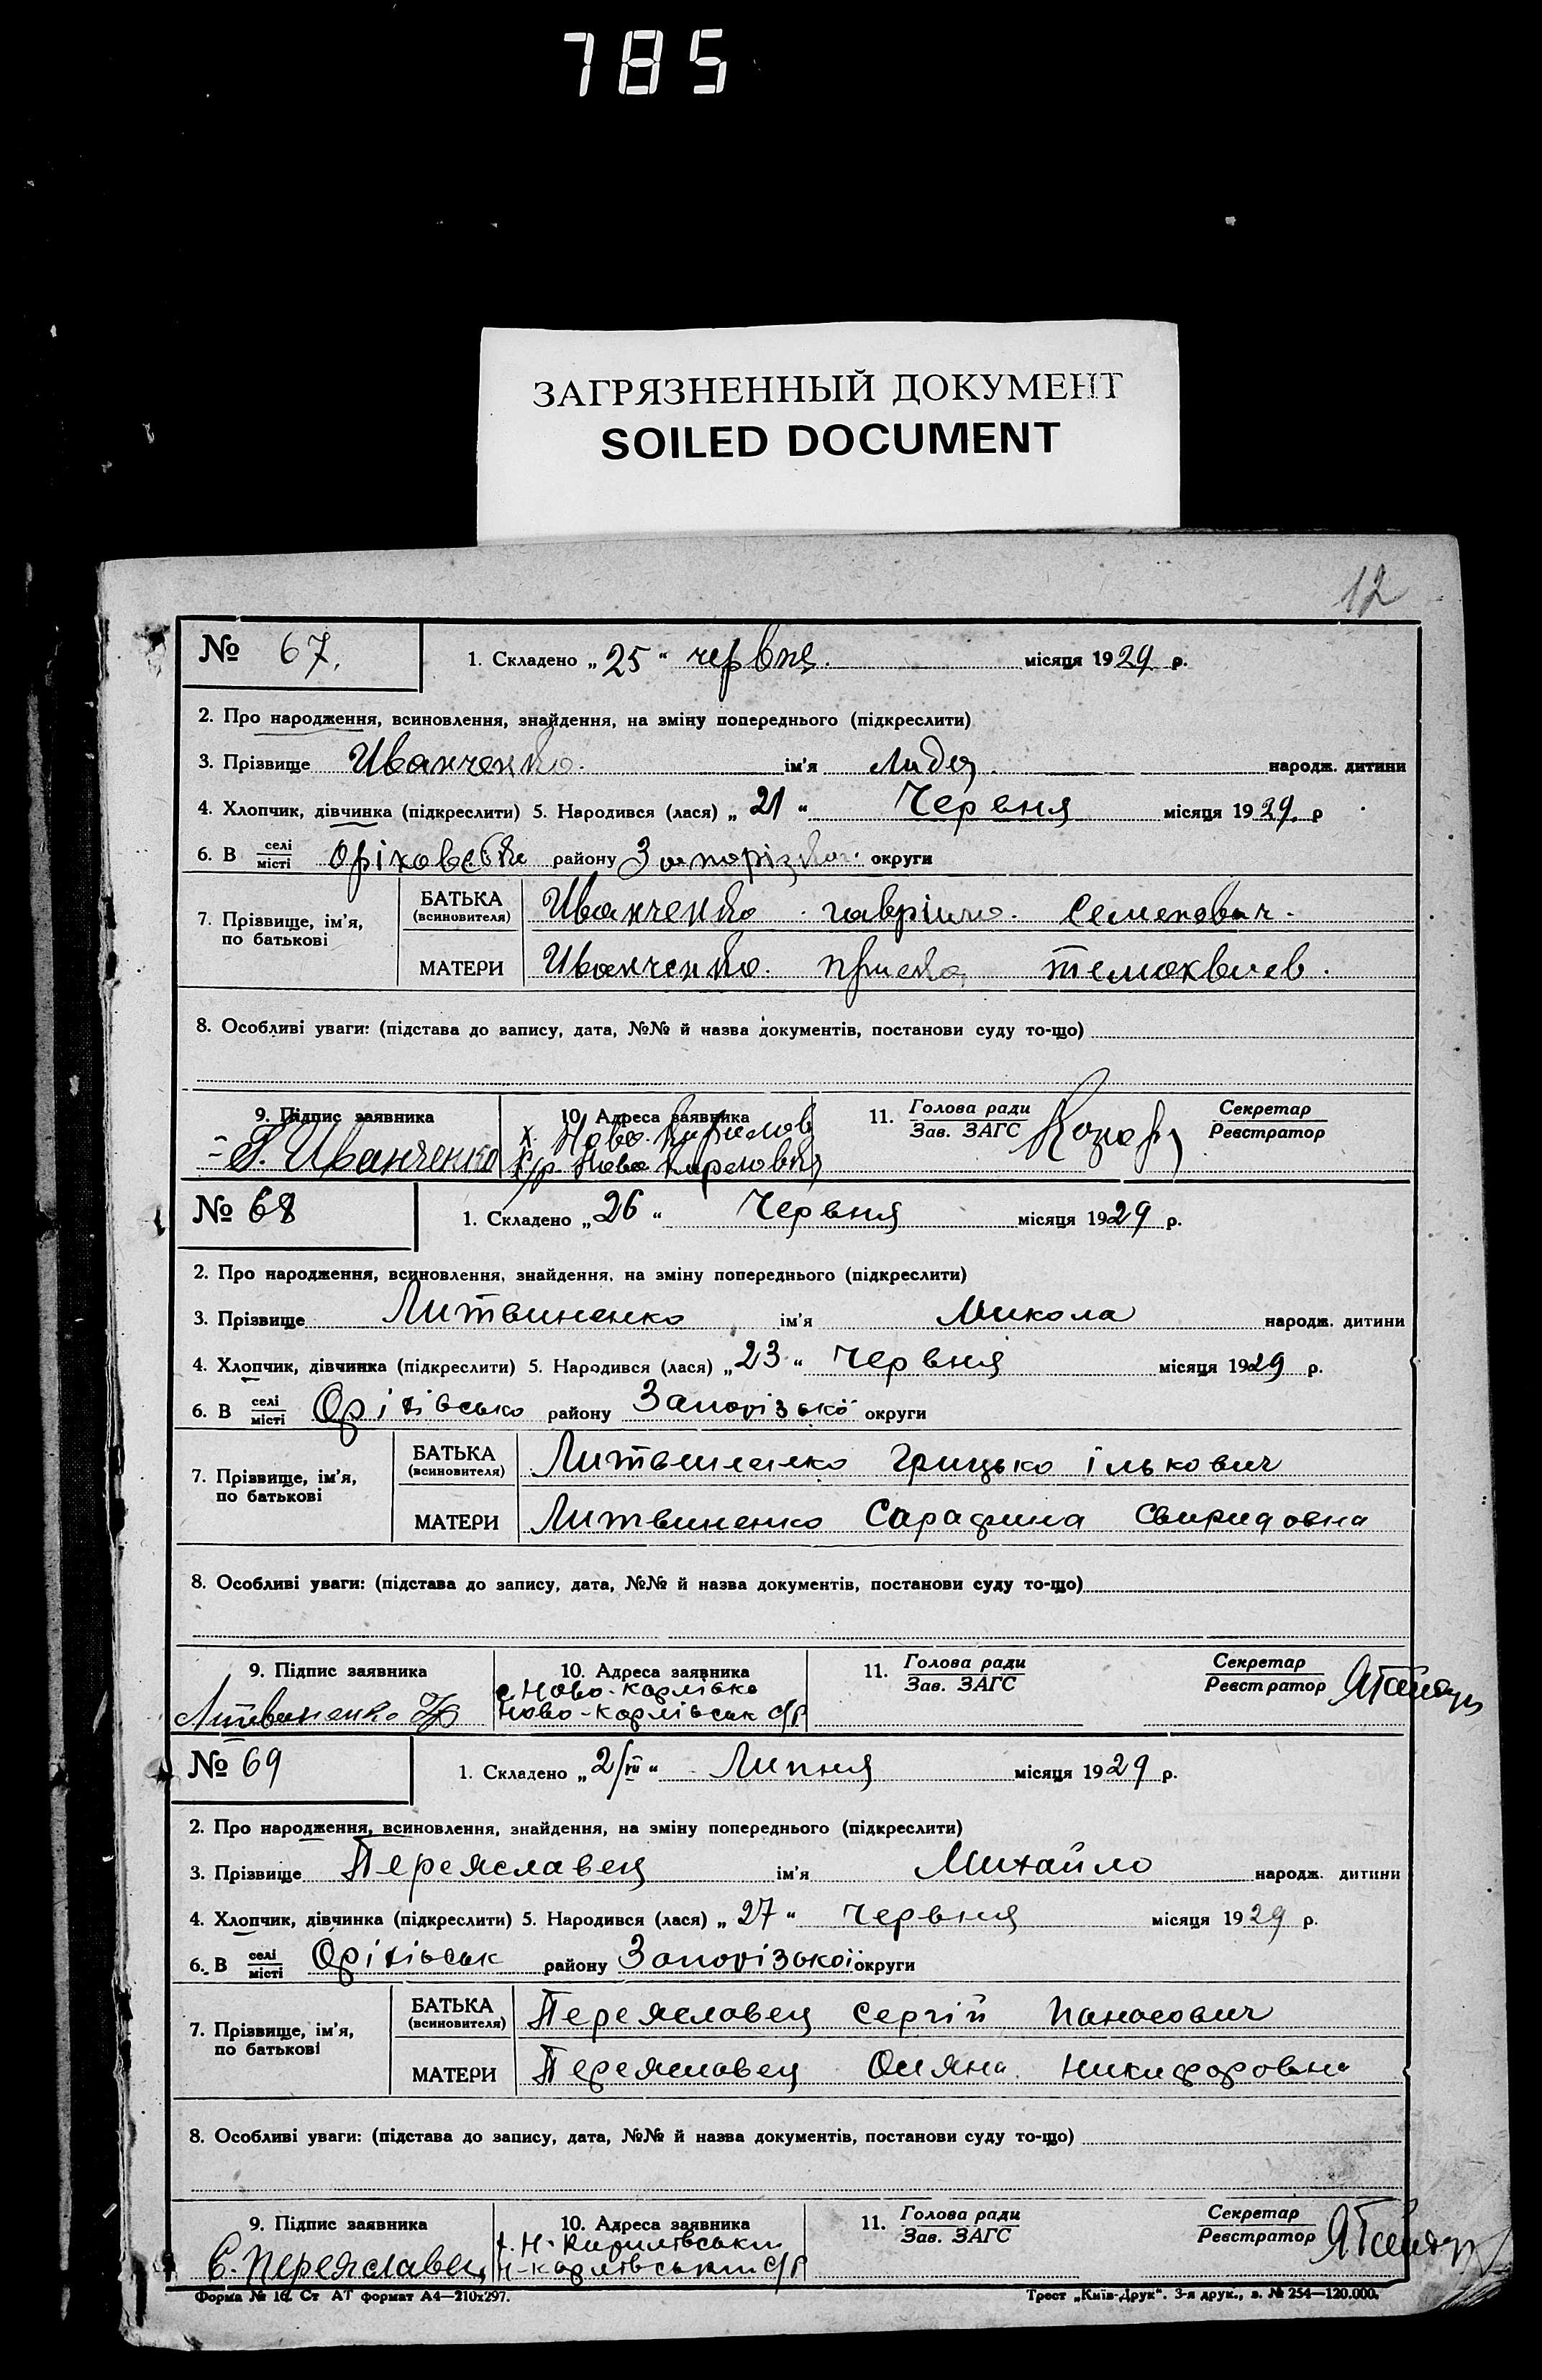 785
ЗАГРЯЗНЕННЫЙ ДОКУМЕНТ
SOILED DOCUMENT
12
№ 67. 1. Складено „25“ червня. місяця 1929 р.
2. Про народження, всиновлення, знайдення, на зміну попереднього (підкреслити)
3. Прізвище Иванченко. ім'я Лидя. народж. дитини
4. Хлопчик, дівчинка (підкреслити) 5. Народився (лася) „21“ Червня місяця 1929. р
6. В селі/місті району округи
7. Прізвище, ім'я, по батькові
БАТЬКА (всиновителя) Иванченко Семенович.
МАТЕРИ Иванченко.
8. Особливі уваги: (підстава до запису, дата, №№ й назва документів, постанови суду то-що)
9. Підпис заявника 10. Адреса заявника 11. Голова ради/Зав. ЗАГС Секретар/Реєстратор
Иванченко
№ 68 1. Складено „26“ Червня місяця 1929 р.
2. Про народження, всиновлення, знайдення, на зміну попереднього (підкреслити)
3. Прізвище Литвиненко ім'я Микола народж. дитини
4. Хлопчик, дівчинка (підкреслити) 5. Народився (лася) „23“ Червня місяця 1929 р.
6. В селі/місті Оріхівсько району Запорізької округи
7. Прізвище, ім'я, по батькові
БАТЬКА (всиновителя) Литвиненко Грицько ількович
МАТЕРИ Литвиненко Сарафина Свиридовна
8. Особливі уваги: (підстава до запису, дата, №№ й назва документів, постанови суду то-що)
9. Підпис заявника 10. Адреса заявника 11. Голова ради/Зав. ЗАГС Секретар/Реєстратор
с. Ново-Карлівка
Литвиненко Ново-Карлівськ с/р
№ 69 1. Складено „2/VII“ Липня місяця 1929 р.
2. Про народження, всиновлення, знайдення, на зміну попереднього (підкреслити)
3. Прізвище Переяславец ім'я Михайло народж. дитини
4. Хлопчик, дівчинка (підкреслити) 5. Народився (лася) „27“ Червня місяця 1929 р.
6. В селі/місті Оріхівськ району Запорізької округи
7. Прізвище, ім'я, по батькові
БАТЬКА (всиновителя) Переяславец Сергій Панасович
МАТЕРИ Переяславец Никифоровна
8. Особливі уваги: (підстава до запису, дата, №№ й назва документів, постанови суду то-що)
9. Підпис заявника 10. Адреса заявника 11. Голова ради/Зав. ЗАГС Секретар/Реєстратор
С. Переяславец
Форма № 16. Ст АТ формат А4—210х297. Трест „Київ-Друк“. 3-я друк., з. № 254—120.000.